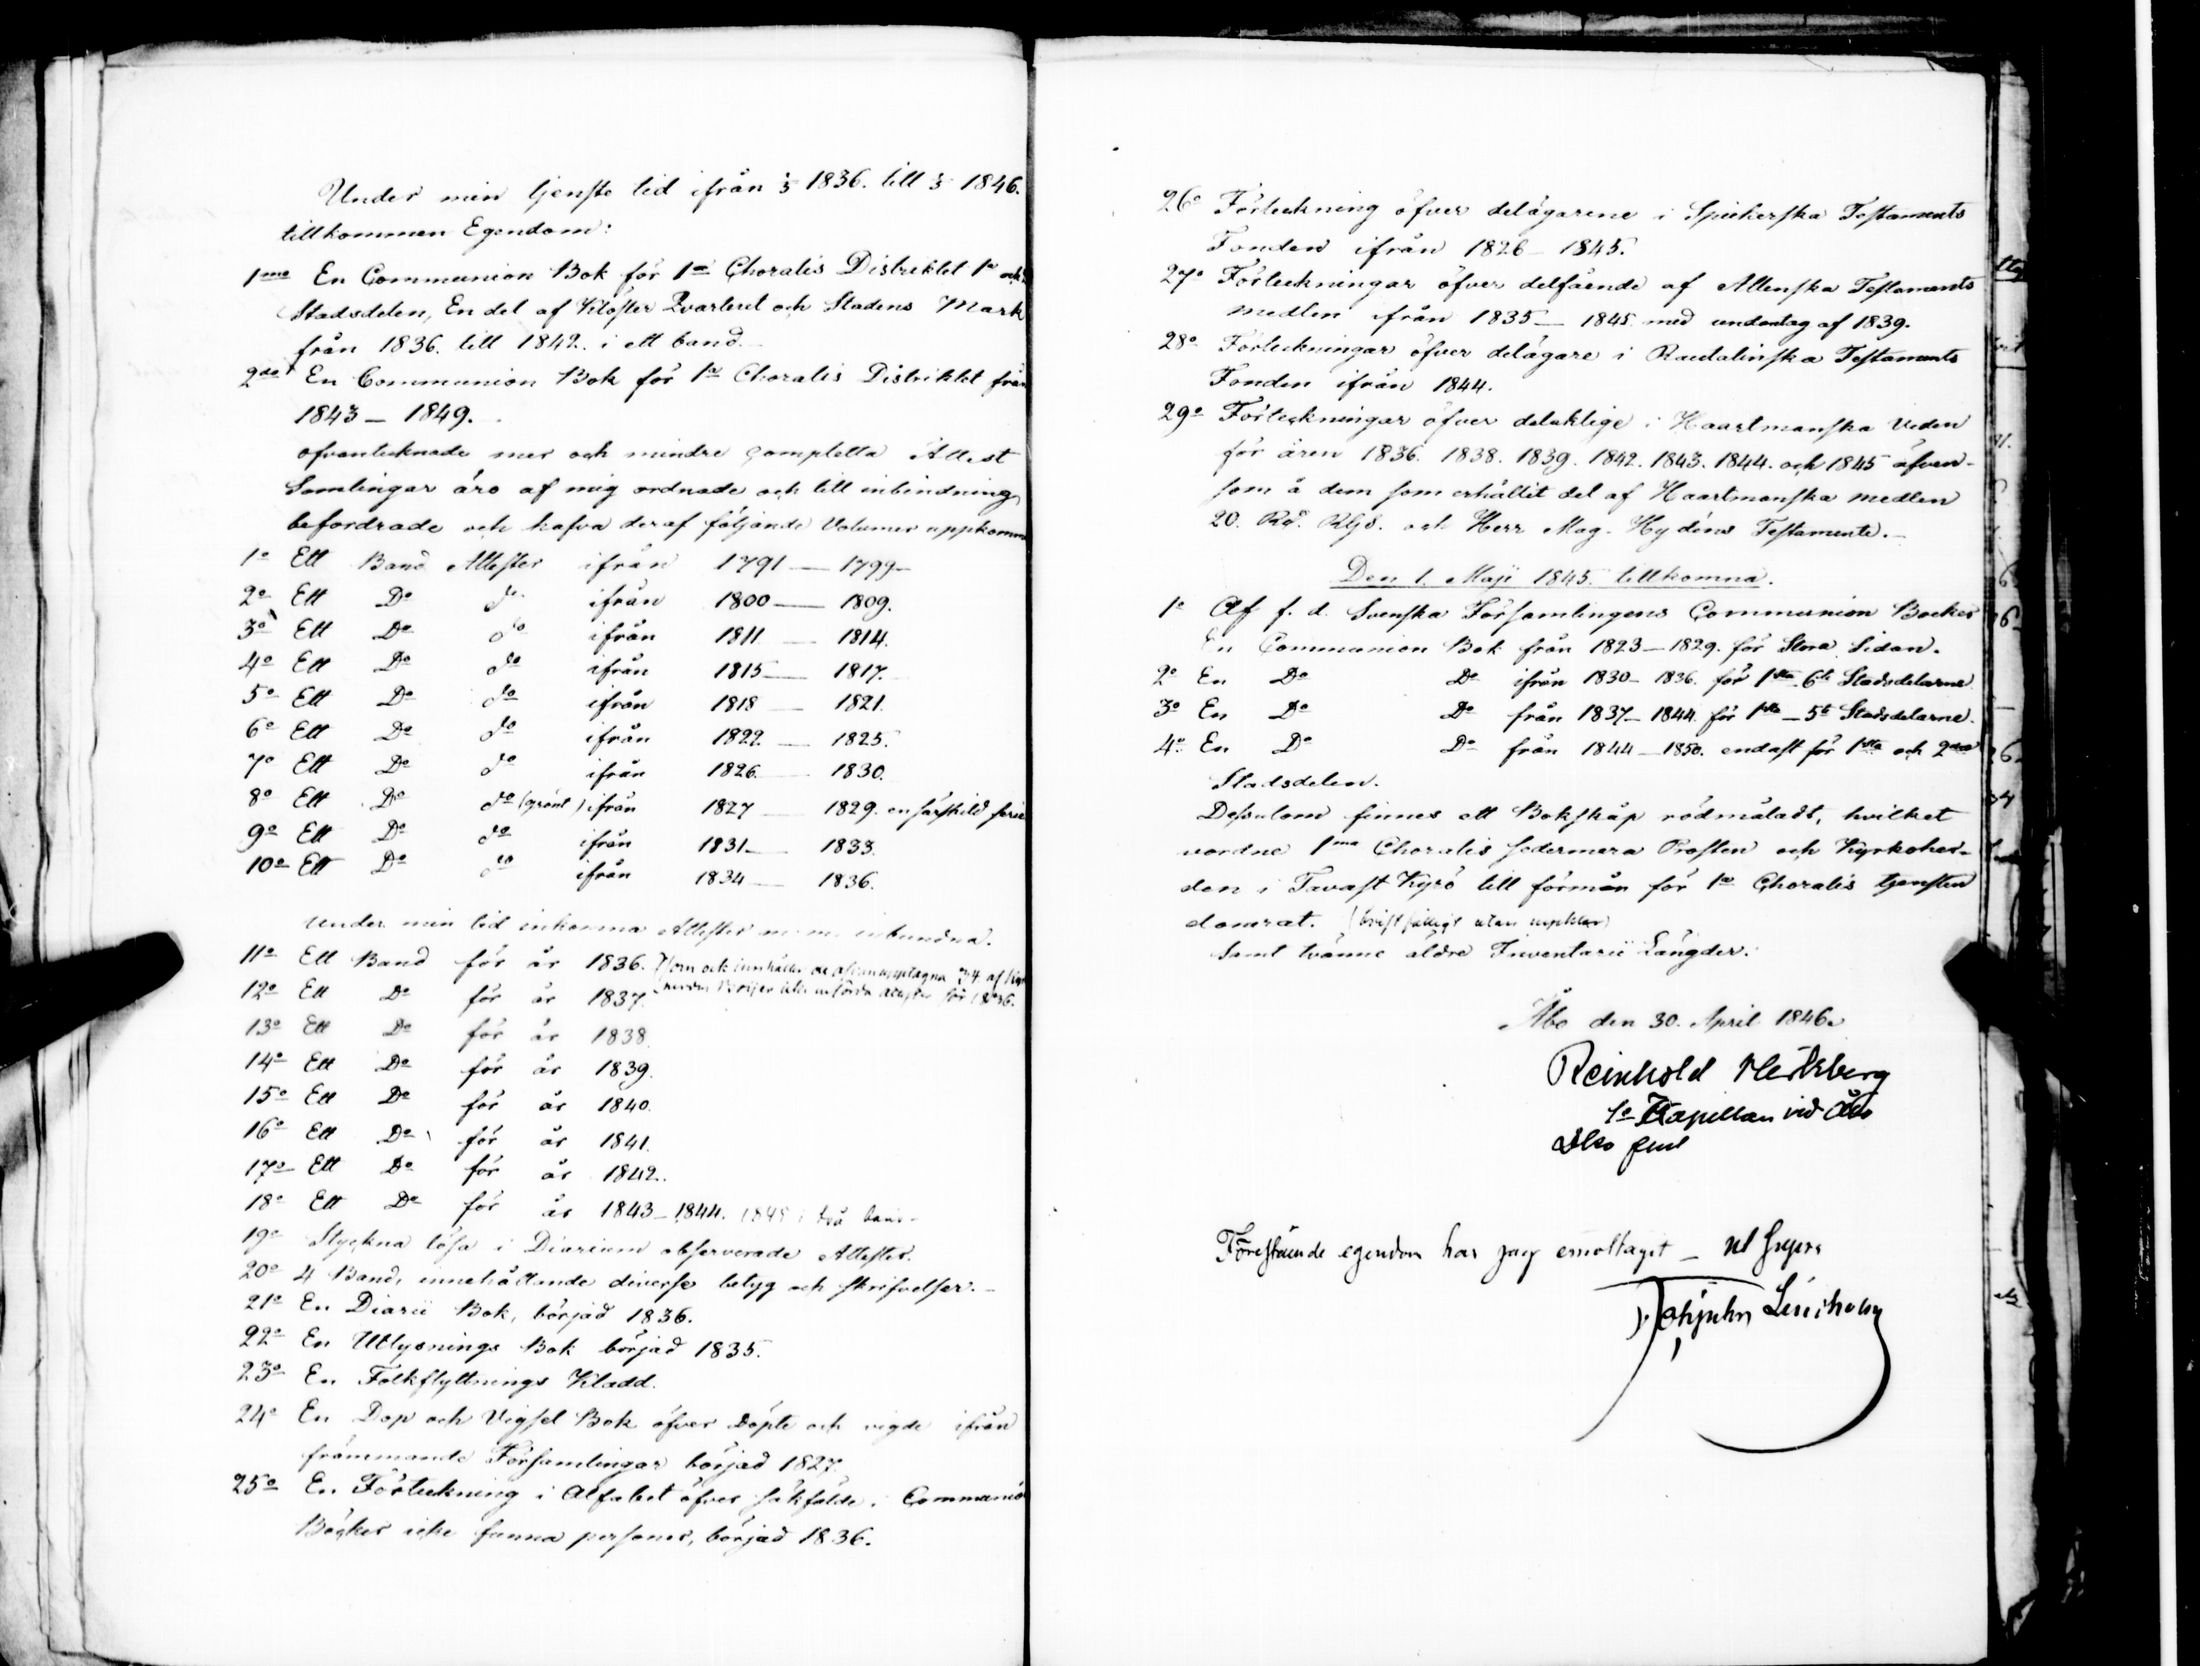 Under min tjenste tid ifrån 1/5 1836. till 1/5 1846.
tillkommen Egendom:
1mo En Communion Bok för 1a Choralis Distriktet 1a och
Stadsdelen, En del af Kloster Qvarteret och Stadens Mark
från 1836. till 1842. i ett band.
2do En Communion Bok för 1a Choralis Distriktet från
1843 – 1849.
ofvantecknade mer och mindre completta Attest
Samlingar äro af mig ordnade och till inbindning
befordrade och hafva deraf följande Volumer uppkomm
1o Ett Band Attester ifrån 1791 — 1799
2o Ett Do do ifrån 1800 — 1809.
3o Ett Do do ifrån 1811 — 1814.
4o Ett Do do ifrån 1815 — 1817.
5o Ett Do do ifrån 1818 — 1821.
6o Ett Do do ifrån 1822. — 1825.
7o Ett Do do ifrån 1826. — 1830.
8o Ett Do do (grönt) ifrån 1827 — 1829. en särskild serie
9o Ett Do do ifrån 1831. — 1833.
10o Ett Do do ifrån 1834 — 1836.
Under min tid inkomna Attester m. m. inbundna.
11o Ett Band för år 1836. som och innehåller de
12o Ett Do för år 1837. införda attester för 1836.
13o Ett Do för år 1838.
14o Ett Do för år 1839.
15o Ett Do för år 1840.
16o Ett Do för år 1841.
17o Ett Do för år 1842.
18o Ett Do för år 1843 – 1844. 1845 i två band
19o Styckna lösa i Diarium observerade Attester.
20o 4 Band, innehållande diverse betyg och skrifvelser. –
21o En Diarii Bok, börjad 1836.
22o En Utlysnings Bok börjad 1835.
23o En Folkflyttnings Kladd.
24o En Dop och Vigsel Bok öfver Döpte och vigde ifrån
främmande Församlingar börjad 1827.
25o En Förteckning i Alfabet öfver sakfälde i Communio
Böcker icke funna personer, börjad 1836.
26o Förteckning öfver delägarene i Spiekerska Testaments
Fonden ifrån 1826 – 1845.
27o Förteckningar öfver delfående af Allenska Testaments
medlen ifrån 1835 – 1845 med undantag af 1839.
28o Förteckningar öfver delägare i Raudalinska Testaments
Fonden ifrån 1844.
29o Förteckningar öfver delaktige i Haartmanska Veden
för åren 1836. 1838. 1839. 1842. 1843. 1844. och 1845 äfven-
som å dem som erhållit del af Haartmanska medlen
20. Rd. Rgs. och Herr Mag. Hydéns Testamente. –
Den 1. Maji 1845. tillkomna.
1o Af f. d. Svenska Församlingens Communion Bocker
En Communion Bok från 1823 – 1829. för Stora Sidan.
2o En Do Do ifrån 1830 – 1836. för 1sta – 6te Stadsdelarne
3o En Do Do från 1837 – 1844. för 1sta – 5te Stadsdelarne.
4o En Do Do från 1844 – 1850. endast för 1sta och 2dra
Stadsdelen.
Dessutom finnes ett Bokskåp rödmåladt, hvilket
vordne 1ma Choralis sedermera Prosten och Kyrkoher-
den i Tavast Kyrö till förmån för 1a Choralis tjensten
donerat. (bristfälligt utan nycklar)
Samt tvänne äldre Inventarii Längder.
Åbo den 30. April 1846.
Reinhold Hertzberg
1o Kapellan vid Åbo
Förestående egendom har jag emottagit – ut supra